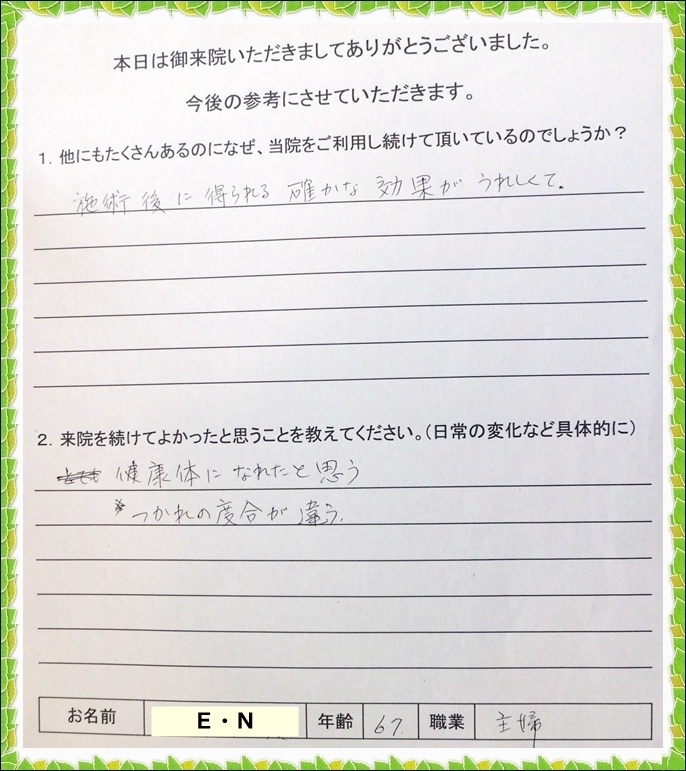 本日は御来院いただきましてありがとうございました。
今後の参考にさせていただきます。
1. 他にもたくさんあるのになぜ、当院をご利用し続けて頂いているのでしょうか？
施術後に得られる確かな効果がうれしくて。
2. 来院を続けてよかったと思うことを教えてください。（日常の変化など具体的に）
健康体になれたと思う
*つかれの度合が違う。
お名前 E・N 年齢 67. 職業 主婦